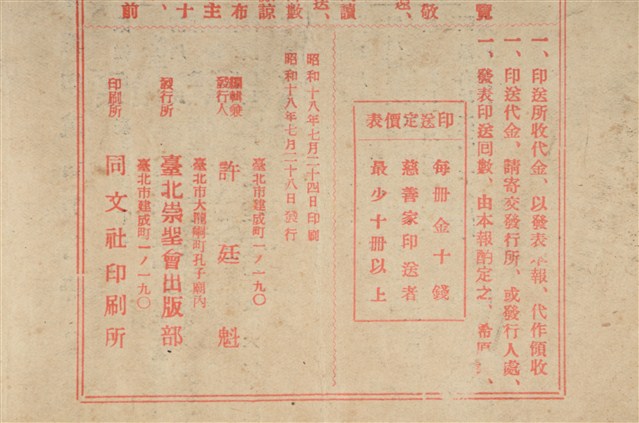 覽
敬
讀
送、
數
諒
布
主
十
前
一、印送所收代金、以發表本報、代作領收
一、印送代金、請寄交發行所、或發行人處、
一、發表印送回數、由本報酌定之、希
印送定價表
每册金十錢
慈善家印送者
最少十册以上
昭和十八年七月二十四日印刷
昭和十八年七月二十八日發行
臺北市建成町一ノ一九〇
編輯兼
發行人
許廷魁
臺北市大龍峒町孔子廟內
發行所
臺北崇聖會出版部
臺北市建成町一ノ一九〇
印刷所
同文社印刷所